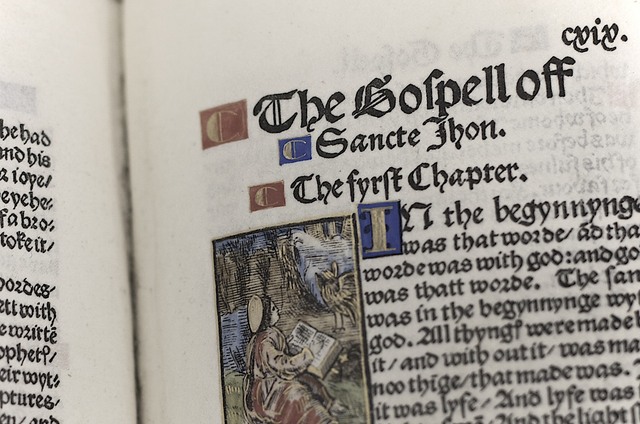 he had
nd his
r ioye/
eyehe:
f a bro:
toke it/
wordes
ett with
e writtē
ophets/
eir wyt:
ptures/
cxix.
The Gospell off
Sancte Jhon.
The fyrst Chapter.
IN the begynnynge
was that worde/ ād tha
worde was with god: and go
was thatt worde. The sam
was in the begynnynge wy
god. All thyngs were made b
it/ and with out it/ was ma
noo thige/ that made was.
it was lyfe/ And lyfe was
And the light